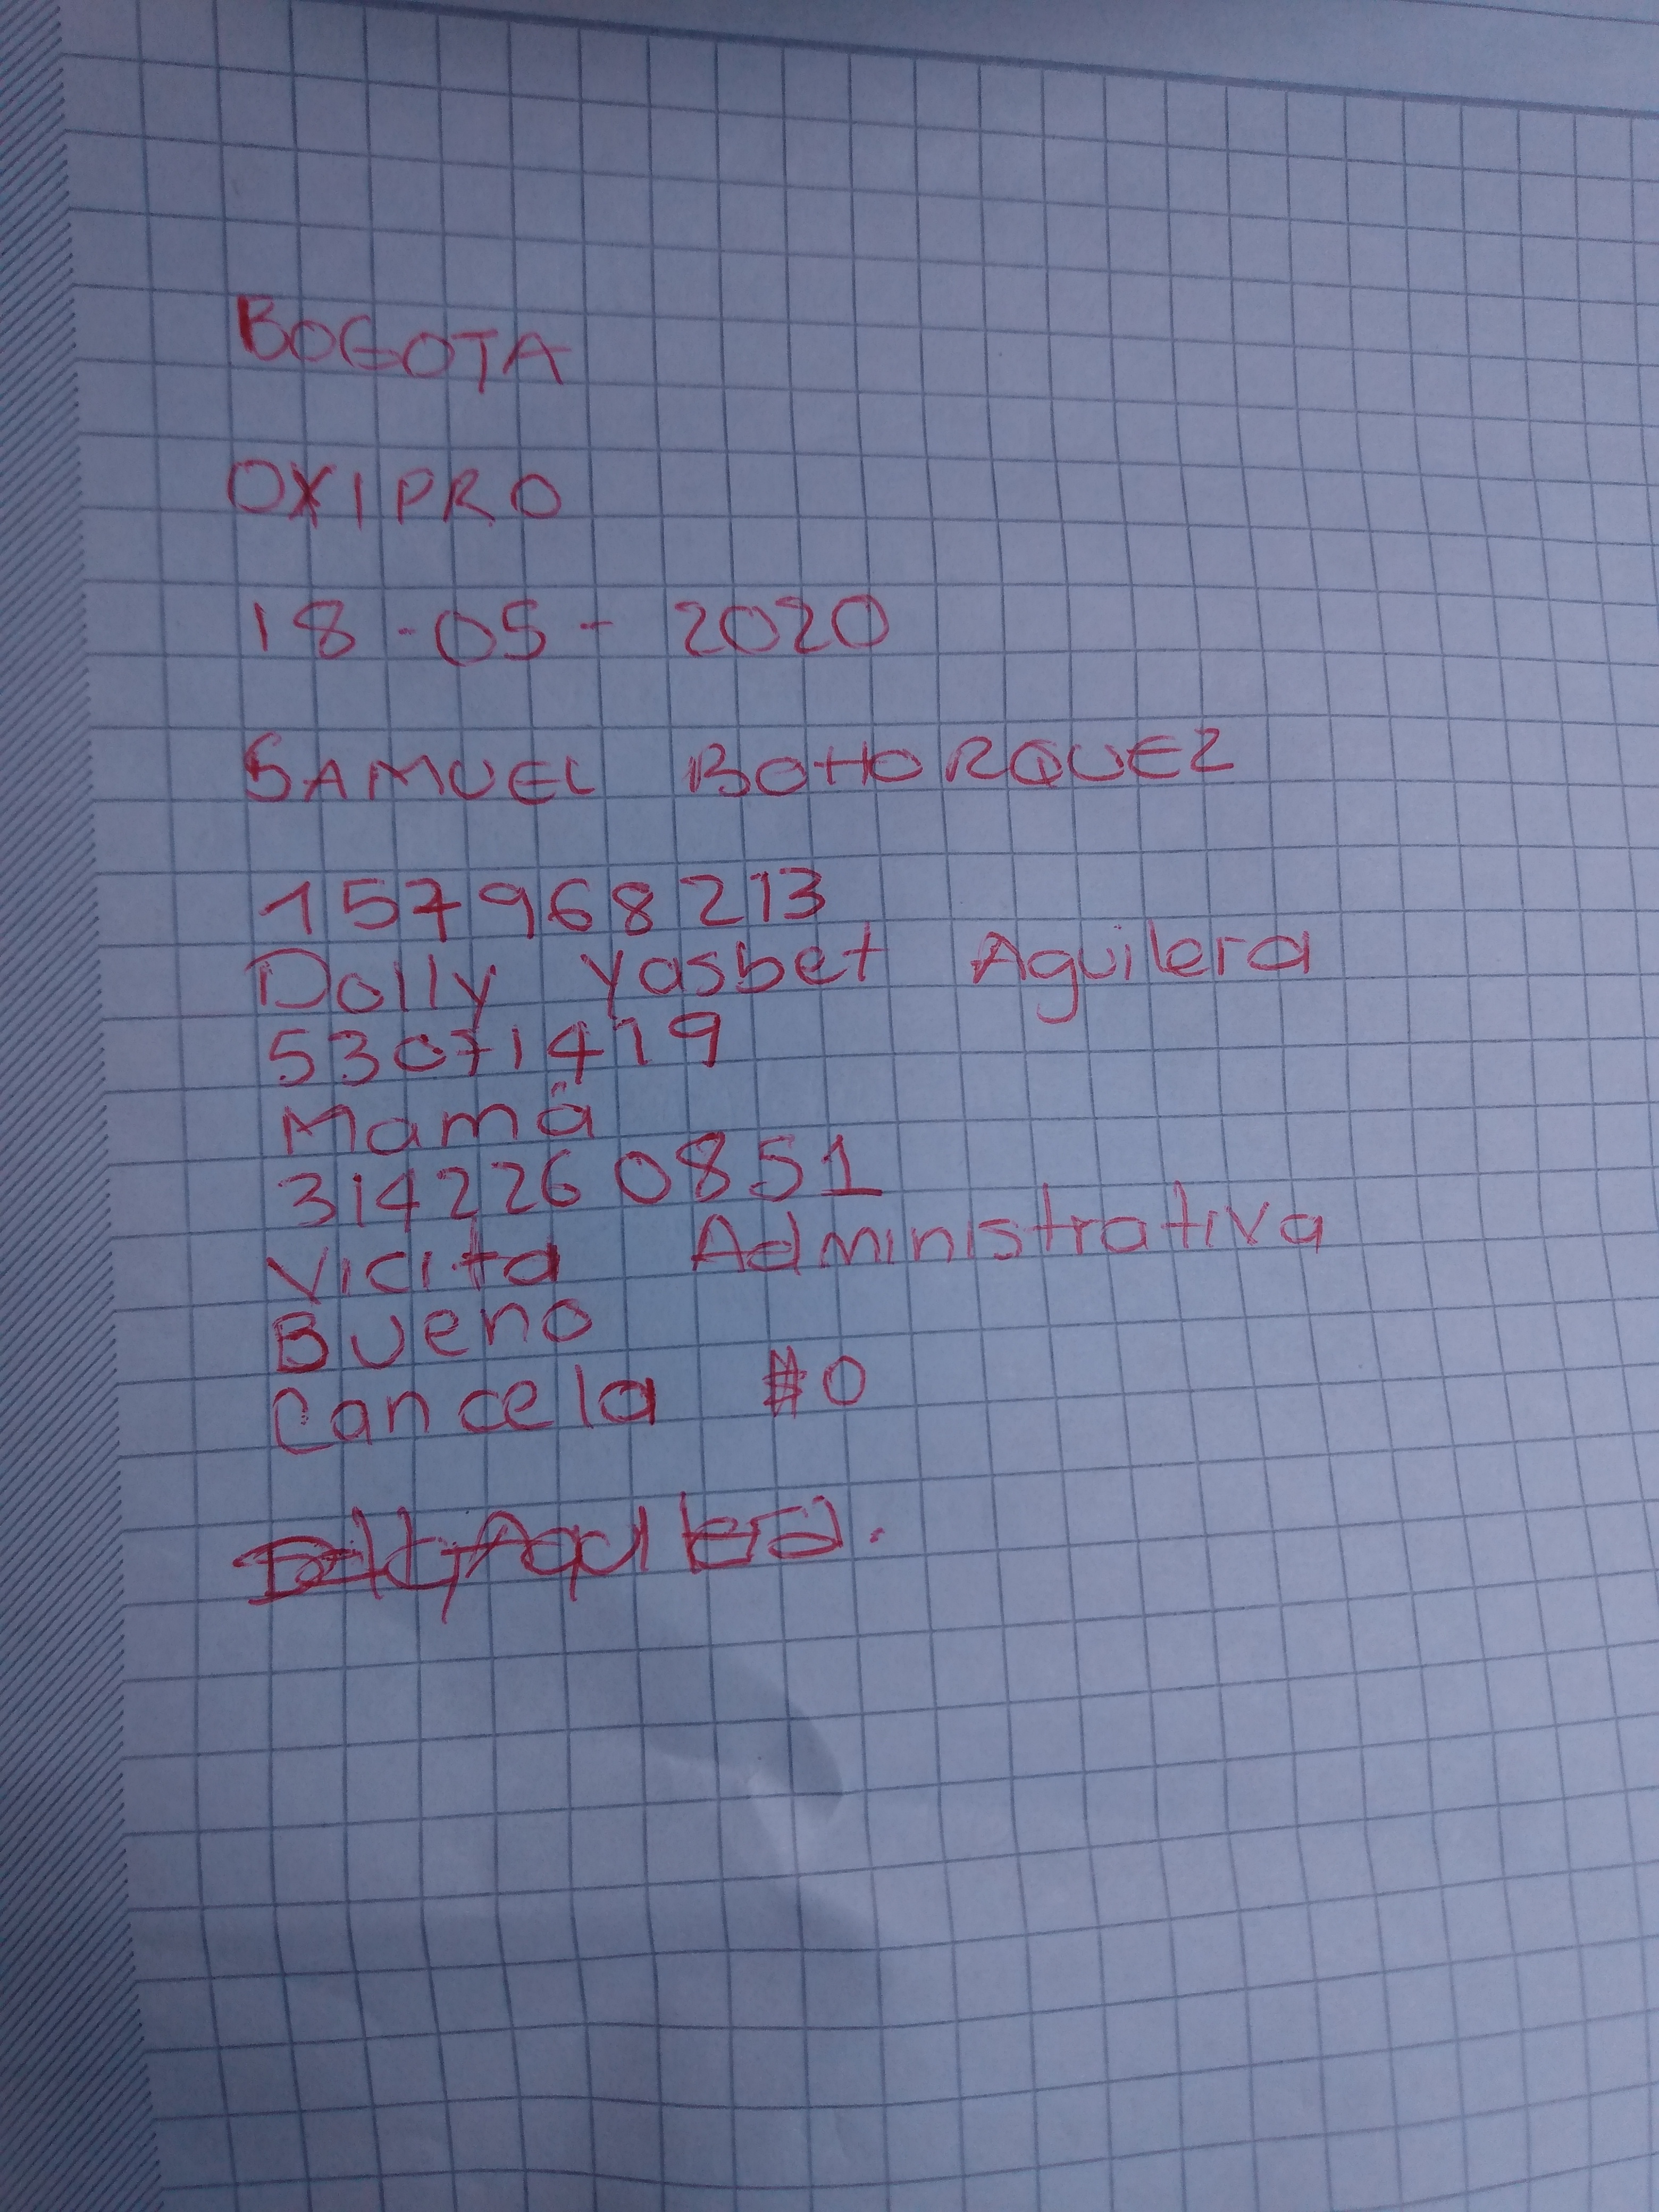 BOGOTA
OXIPRO
18-05-2020
SAMUEL BOHORQUEZ
157968213
Dolly Yasbet Aguilera
53071419
Mamá
3142260851
Vicita Administrativa
Bueno
Cancela #0
Dolly Aguilera.